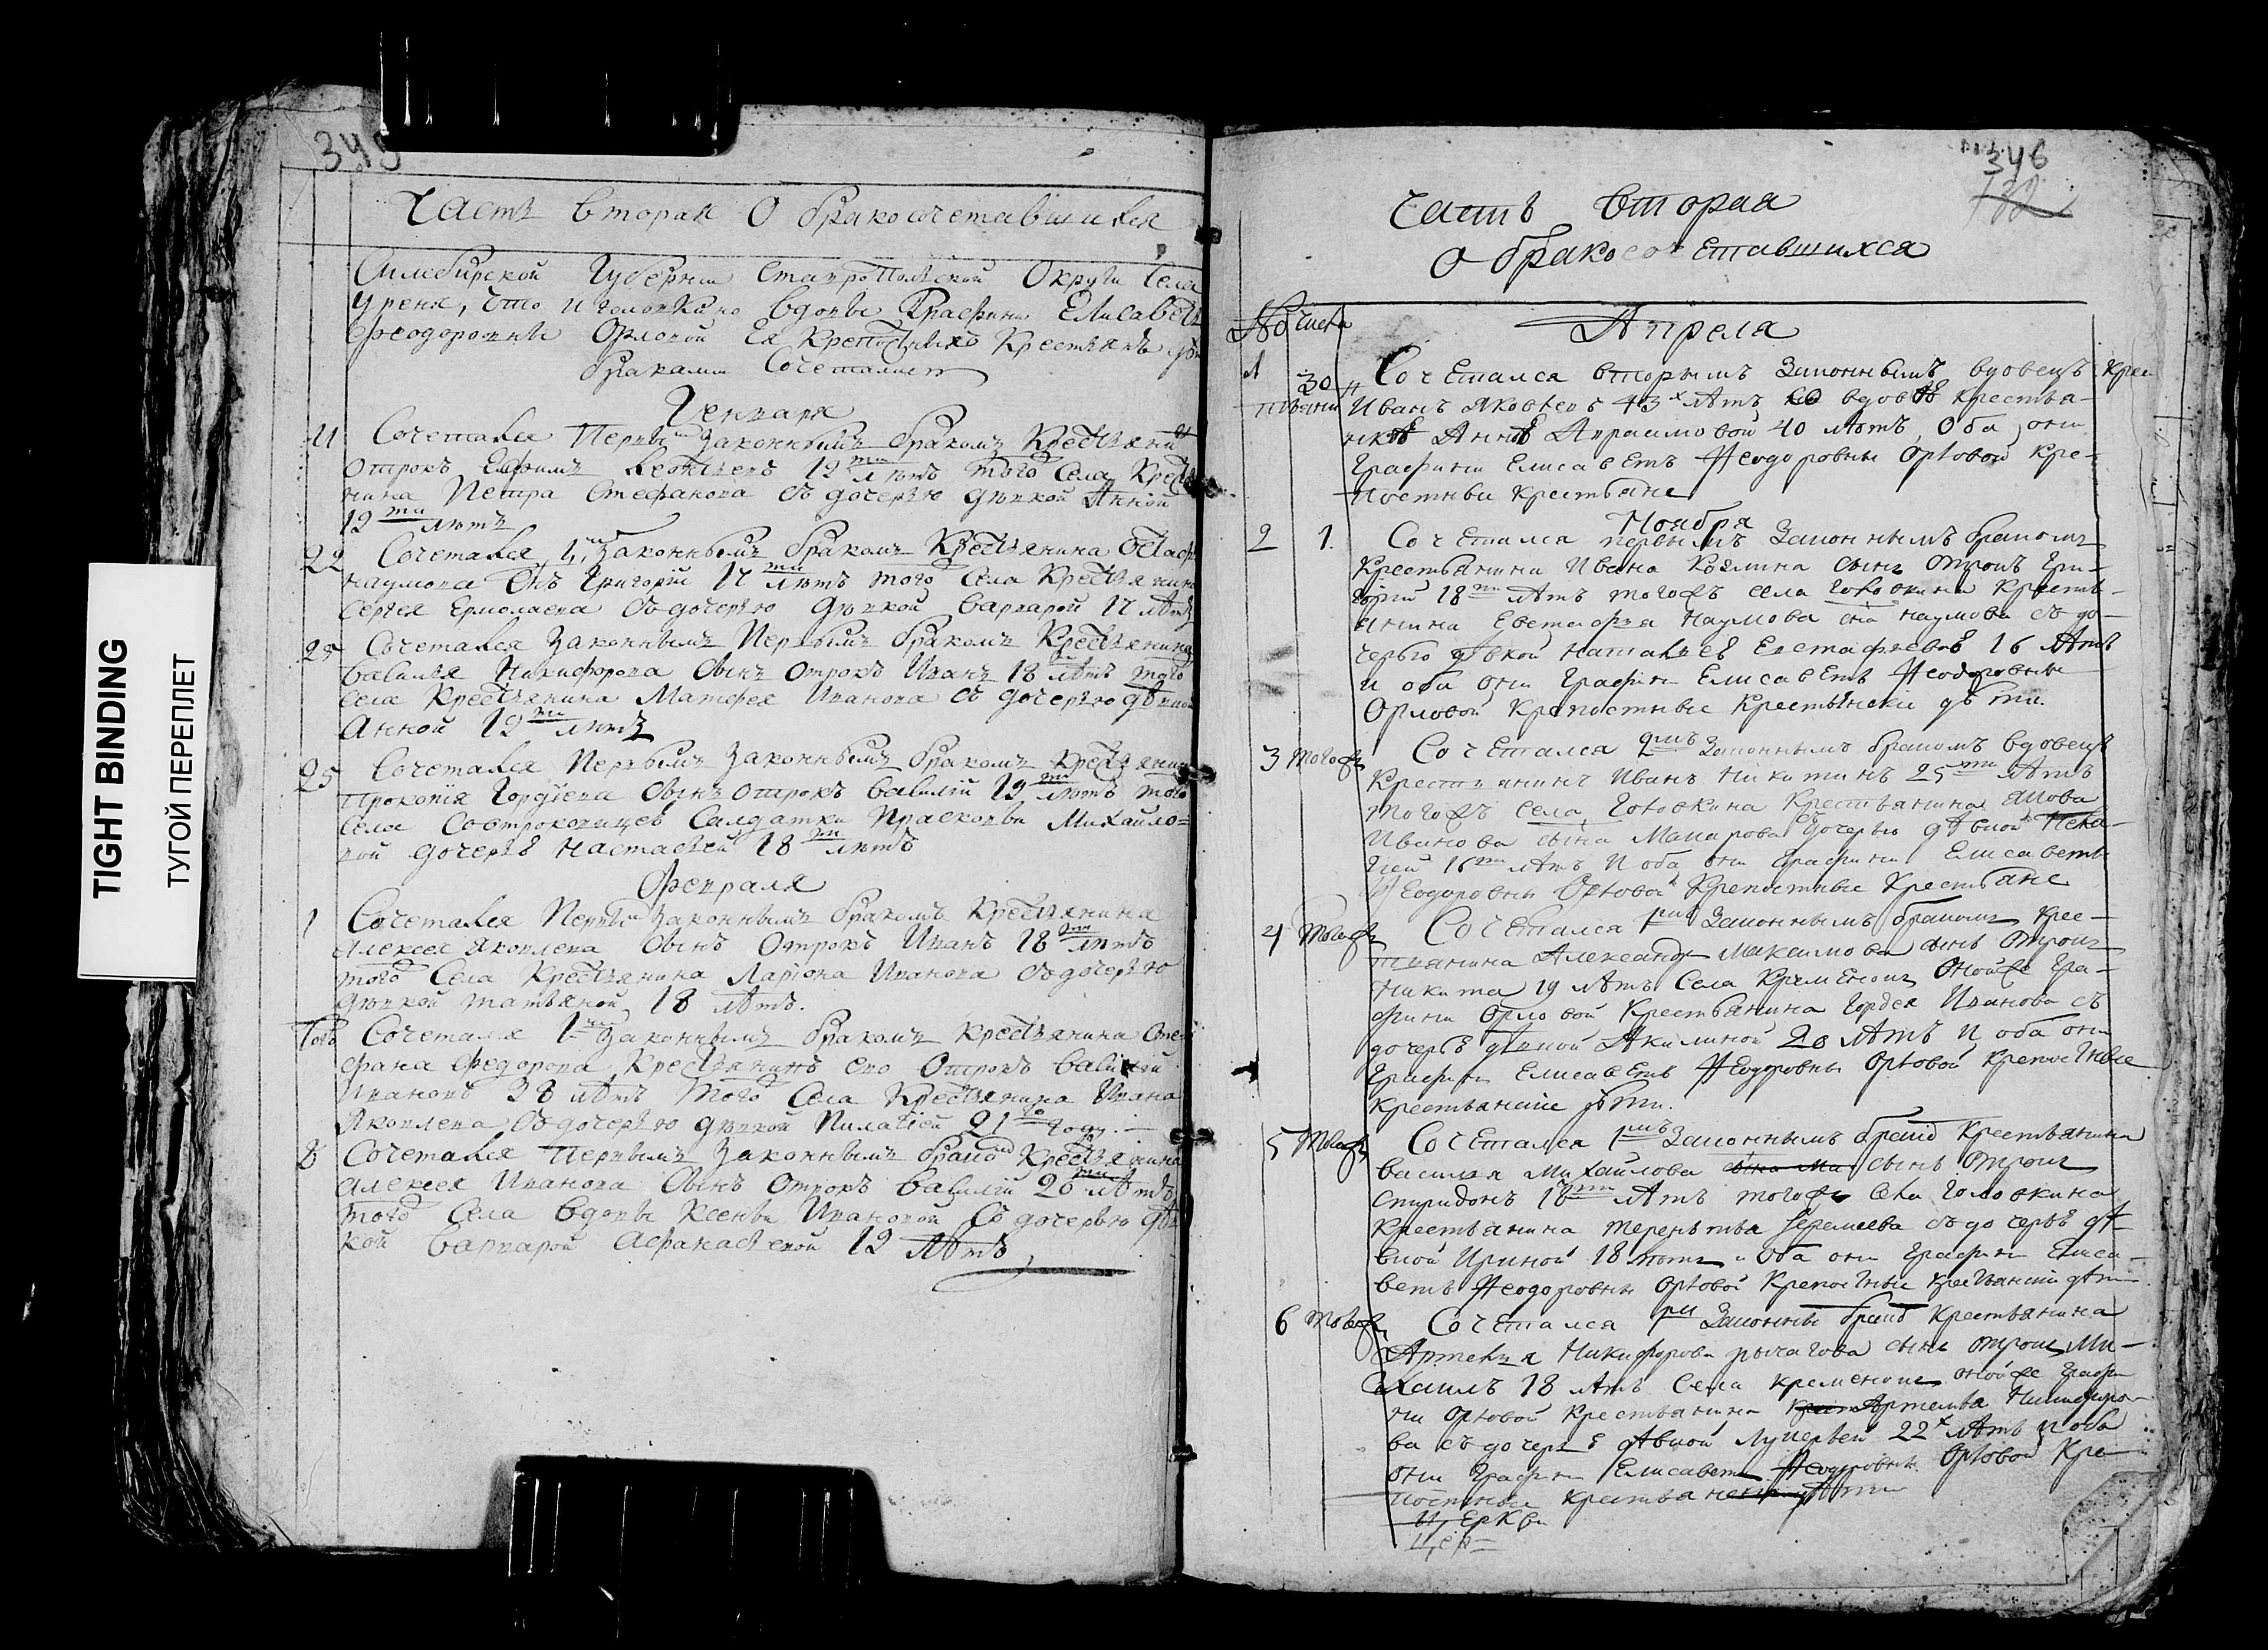 TIGHT BINDING
ТУГОЙ ПЕРЕПЛЕТ
345
Часть вторая О бракосочетавшихся
Симбирской Губернии Ставропольской Округи Села
Уреня, Что и головкино вдовы Графини Елисавет
Феодоровны Орловой Ея Крепостныхъ Крестьянъ
браками Сочеталися
Генваря
11 Сочетался Первымъ законнымъ бракомъ Крестьянин
отрокъ Ефимъ Леонтьевъ 19 ти лѣтъ того Села Крестья
нина Петра Стефанова съ дочерью дѣвкой Анной
19 ти лѣтъ
22 Сочетался 1 законнымъ бракомъ Крестьянина Остафья
наумова Снъ Григорій 17 ти лѣтъ того Села Крестьянина
Сергея Ермолаева съ дочерью дѣвкой варварой 17 лѣтъ
25 Сочетался законнымъ Первымъ бракомъ Крестьянина
василья Никифорова Сынъ отрокъ Иванъ 18 лѣтъ того
Села Крестьянина Матфея Иванова съ дочерью дѣвкой
Анной 19 ти лѣтъ
25 Сочетался Первымъ законнымъ бракомъ Крестьянина
Прокопія Гордѣева Сынъ отрокъ василій 19 ти лѣтъ того
Села Салдатки Прасковьи Михайло=
вой дочерьѣ настасьей 18 ти лѣтъ
Февраля
1 Сочетался Первымъ законнымъ бракомъ Крестьянина
Алексея Яковлева Сынъ Отрокъ Иванъ 18 ти лѣтъ
того Села Крестьянина Ларіона Иванова съ дочерью
дѣвкой татьяной 18 лѣтъ.
Того Сочетался 1 законнымъ бракомъ Крестьянина Сте
фана Федорова Крестьянинъ его Отрокъ василій
Ивановъ 38 лѣтъ того Села Крестьянина Ивана
Яковлева съ дочерью дѣвкой Пилагіей 21 го году.
8 Сочетался Первымъ законнымъ бракомъ Крестьянина
Алексея Иванова Сынъ Отрокъ василій 20 ти лѣтъ
того Села вдовы Ксеньи Ивановой Съ дочерью дѣв
кой варварой Афанасьевой 19 лѣтъ
346
132
Часть вторая
О бракосочетавшихся
№ Числа Апреля
1 30 Сочетался вторымъ законнымъ вдовецъ Крес
тьянин Иванъ Яковлевъ 43 х лѣтъ со вдовѣ крестья-
нкѣ Аннѣ Авраамовой 40 лѣтъ, Оба они
Графини Елисаветъ Феодоровны Орловой Кре-
постные крестьяне
Ноября
2 1. Сочетался первымъ законнымъ бракомъ
Крестьянина Ивана Козмина сынъ отрокъ Гри-
горій 18 ти лѣтъ тогожъ села головкина Кресть-
янина Евстафья Наумова съ до-
черью дѣвкой наталіеѣ Евстафьевоѣ 16 лѣтъ
и оба они Графини Елисаветъ Феодоровны
Орловой Крепостные Крестьянскіе дѣти.
3 Тогожъ Сочетался 2 мъ законнымъ бракомъ вдовецъ
Крестьянинъ Иванъ Никитинъ 25 ти лѣтъ
тогожъ села Головкина Крестьянина Якова
Иванова сына Макарова съ дочерью дѣвкой Пела-
геей 16 ти лѣтъ и оба они Графини Елисаветы
Феодоровны Орловой Крепостные Крестьяне
4 Тогожъ Сочетался 1 мъ законнымъ бракомъ крес-
тьянина Александра Максимова сынъ Отрокъ
Никита 19 лѣтъ Села Кременокъ Онойже Гра-
фини Орловой Крестьянина Гордея Иванова съ
дочерьѣ дѣвкой Акилиной 20 лѣтъ и оба они
Графини Елисаветъ Феодоровны Орловой Крепостные
крестьянскіе дѣти.
5 Тогожъ Сочетался 1 мъ законнымъ бракомъ Крестьянина
василья Михайлова сынъ Отрокъ
Спиридонъ 18 ти лѣтъ тогожъ села головкина
Крестьянина терентья Іеремеева съ дочерьѣ дѣ-
вкой Ириной 18 лѣтъ и Оба они Графини Елиса-
ветъ Феодоровны Орловой Крепостные крестьянскіи дѣти
6 Тогожъ Сочетался 1 законнымъ бракомъ Крестьянина
Артемья Никифорова рычагова сынъ отрокъ Ми-
хаилъ 18 лѣтъ Села кременокъ онойже Графи
ни Орловой Крестьянина Артемья Никифоро-
ва съ дочерьѣ дѣвкой Лукерьей 22 х лѣтъ и оба
они Графини Елисаветъ Феодоровны Орловой Кре-
постные крестьянскіе дѣти
Церкви
Цер=